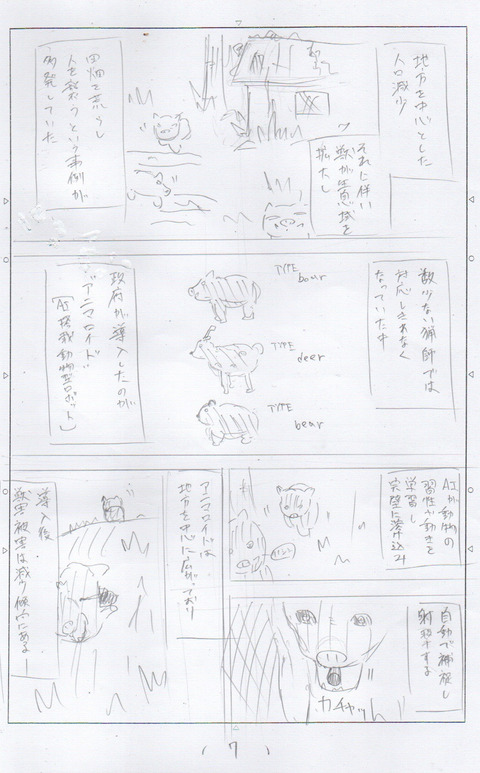 地方を中心とした
人口減少
それに伴い
獣が生息域を
拡大し
田畑を荒らし
人を襲うという事例が
多発していた
数少ない猟師では
対応しきれなく
なっていた中
TYPE
boar
TYPE
deer
TYPE
bear
政府が導入したのが
"アニマロイド"
[AI搭載動物型ロボット]
AIが動物の
習性や動きを
学習し
完璧に溶け込み
自動で捕捉し
射殺する
ガチャッ
アニマロイドは
地方を中心に広がっており
導入後
獣害被害は減少傾向にある—
(7)